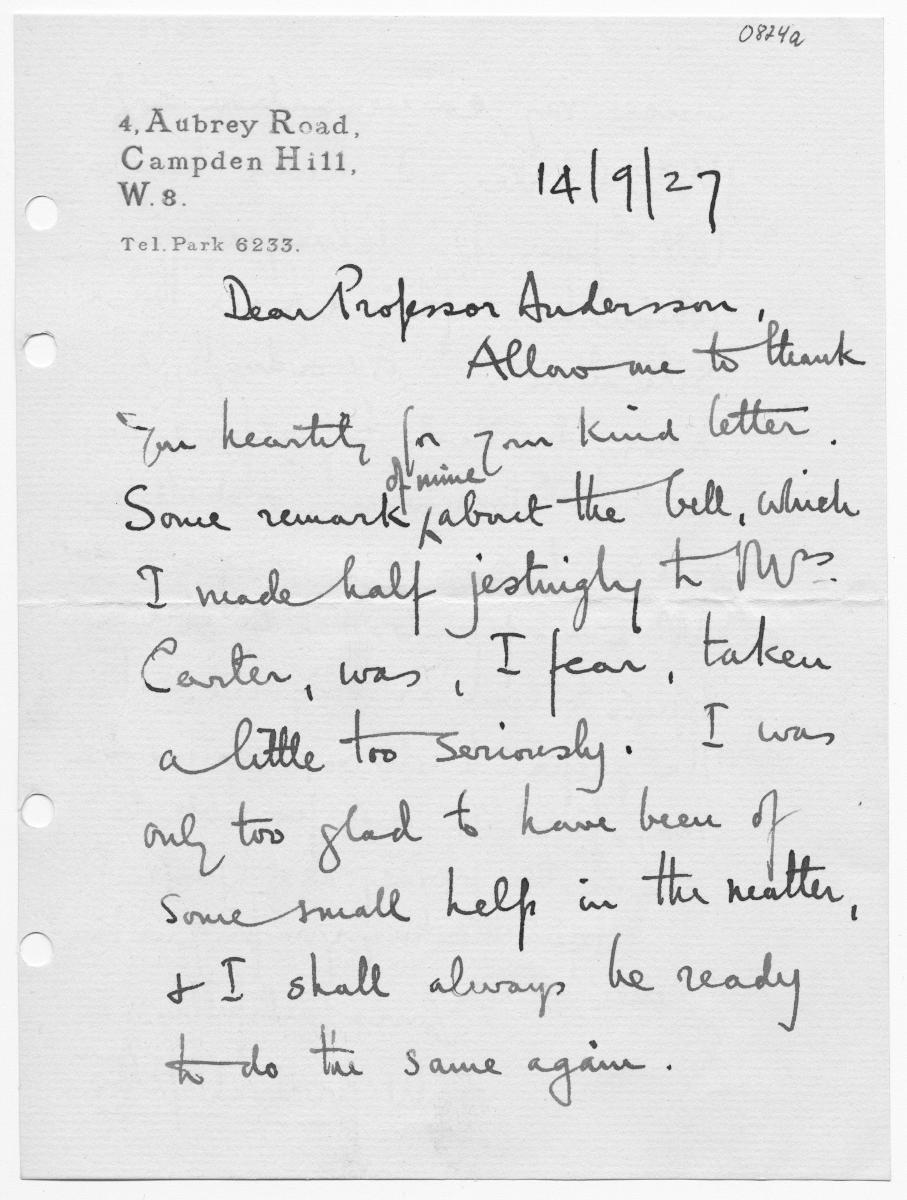 0824a
4, Aubrey Road,
Campden Hill,
W. 8.
Tel. Park 6233.
14/9/27
Dear Professor Andersson,
Allow me to thank
you heartily for your kind letter.
of mine
Some remark about the bell, which
I made half jestingly to Mrs.
Carter, was, I fear, taken
a little too seriously. I was
only too glad to have been of
some small help in the matter,
& I shall always be ready
to do the same again.